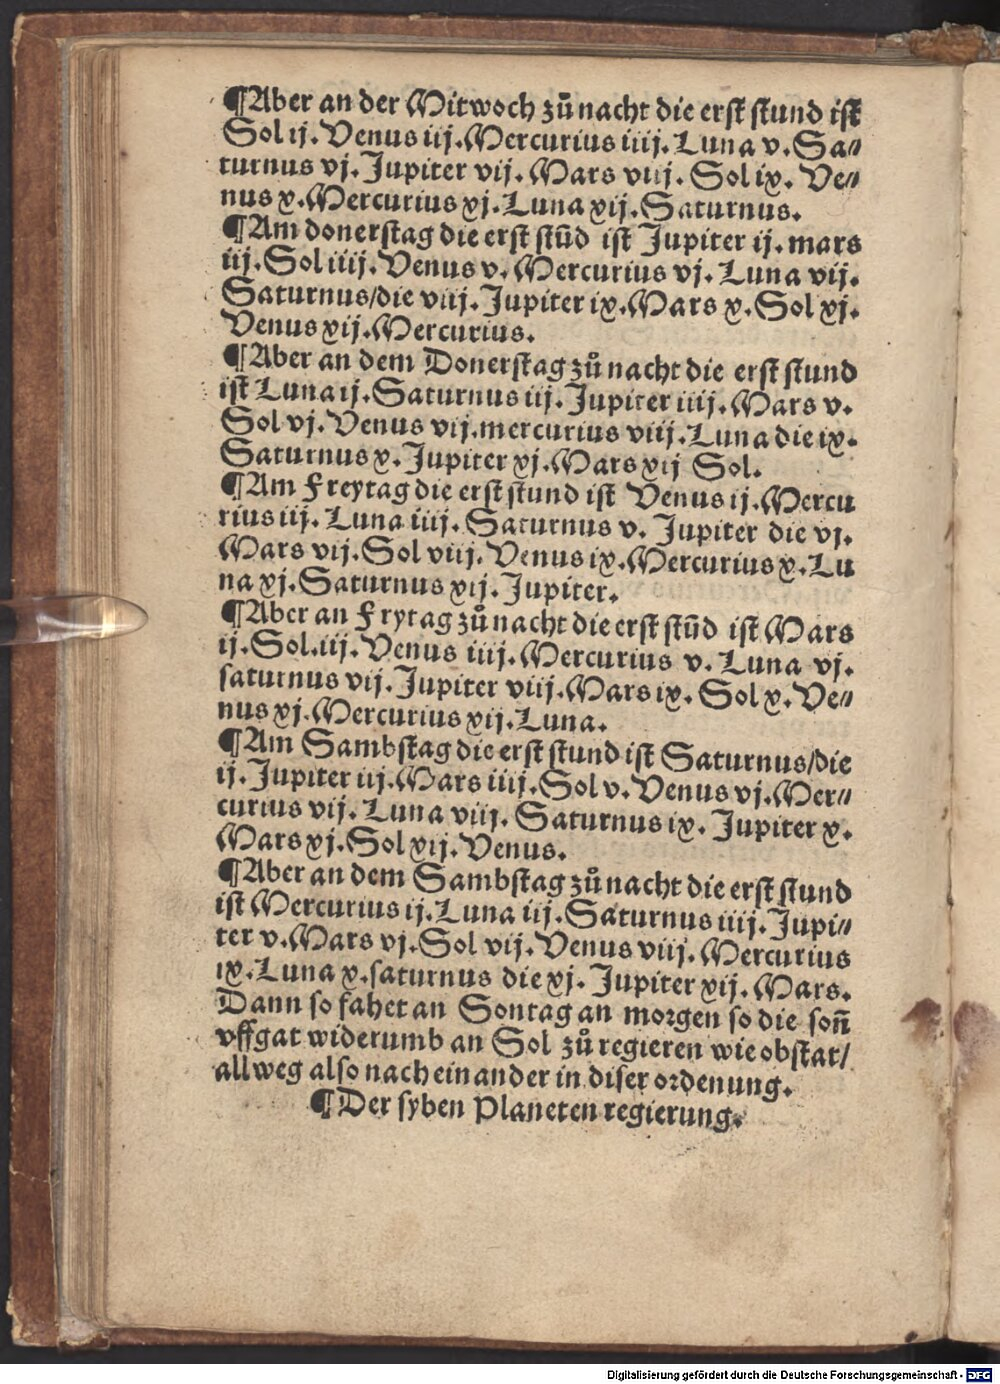 ¶Aber an der Mitwoch zů nacht die erst stund ist
Sol ij. Venus iij. Mercurius iiij. Luna v. Sa⸗
turnus vj. Jupiter vij. Mars viij. Sol ix. Ve⸗
nus x. Mercurius xj. Luna xij. Saturnus.
¶Am donerstag die erst stūd ist Jupiter ij. mars
iij. Sol iiij. Venus v. Mercurius vj. Luna vij.
Saturnus/die viij. Jupiter ix. Mars x. Sol xj.
Venus xij. Mercurius.
¶Aber an dem Donerstag zů nacht die erst stund
ist Luna ij. Saturnus iij. Jupiter iiij. Mars v.
Sol vj. Venus vij. mercurius viij. Luna die ix.
Saturnus x. Jupiter xj. Mars xij Sol.
¶Am Freytag die erst stund ist Venus ij. Mercu
rius iij. Luna iiij. Saturnus v. Jupiter die vj.
Mars vij. Sol viij. Venus ix. Mercurius x. Lu
na xj. Saturnus xij. Jupiter.
¶Aber an Frytag zů nacht die erst stūd ist Mars
ij. Sol. iij. Venus iiij. Mercurius v. Luna vj.
saturnus vij. Jupiter viij. Mars ix. Sol x. Ve⸗
nus xj. Mercurius xij. Luna.
¶Am Sambstag die erst stund ist Saturnus/die
ij. Jupiter iij. Mars iiij. Sol v. Venus vj. Mer⸗
curius vij. Luna viij. Saturnus ix. Jupiter x.
Mars xj. Sol xij. Venus.
¶Aber an dem Sambstag zů nacht die erst stund
ist Mercurius ij. Luna iij. Saturnus iiij. Jupi⸗
ter v. Mars vj. Sol vij. Venus viij. Mercurius
ix. Luna x. saturnus die xj. Jupiter xij. Mars.
Dann so fahet an Sontag an morgen so die soñ
vffgat widerumb an Sol zů regieren wie obstat/
allweg also nach einander in diser ordenung.
¶Der syben Planeten regierung.
Digitalisierung gefördert durch die Deutsche Forschungsgemeinschaft - DFG